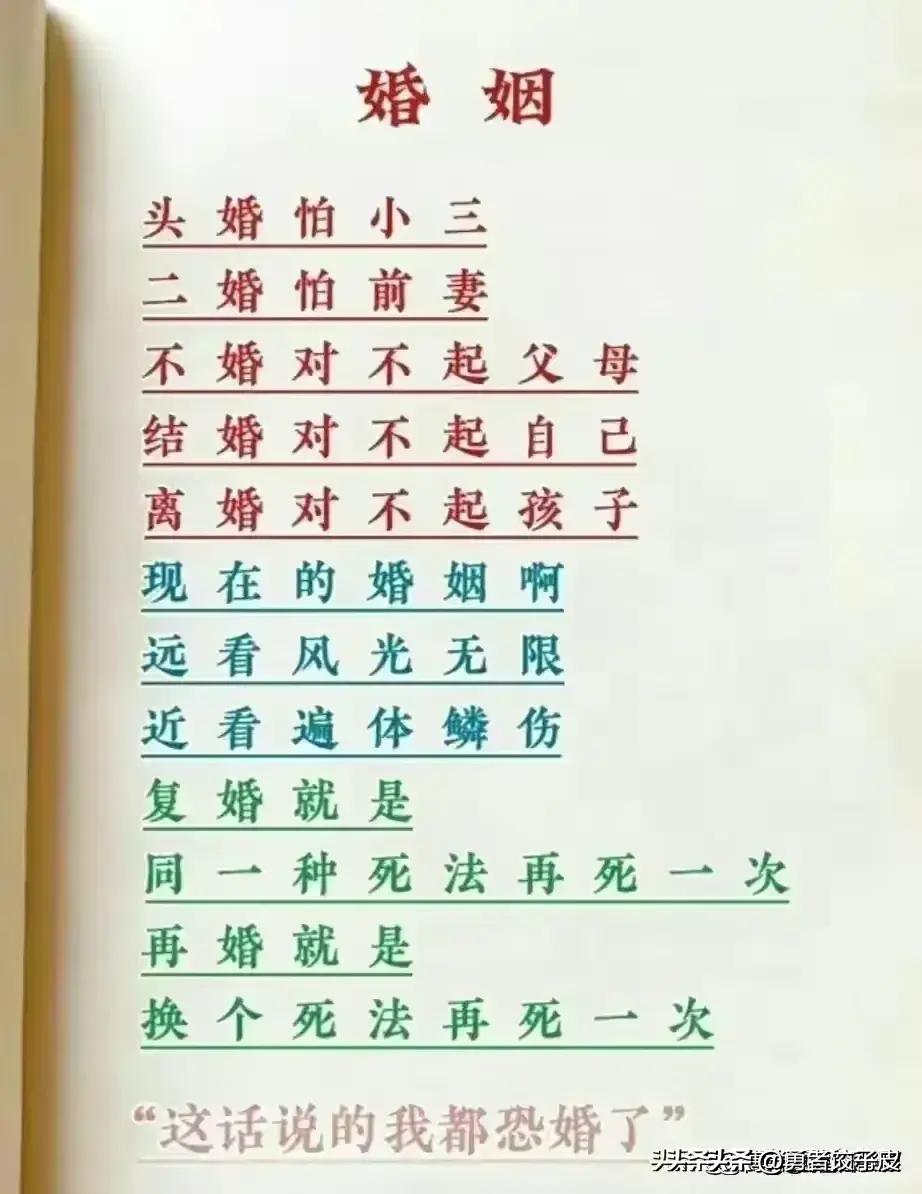 婚姻
头婚怕小三
二婚怕前妻
不婚对不起父母
结婚对不起自己
离婚对不起孩子
现在的婚姻啊
远看风光无限
近看遍体鳞伤
复婚就是
同一种死法再死一次
再婚就是
换个死法再死一次
“这话说的我都恐婚了”